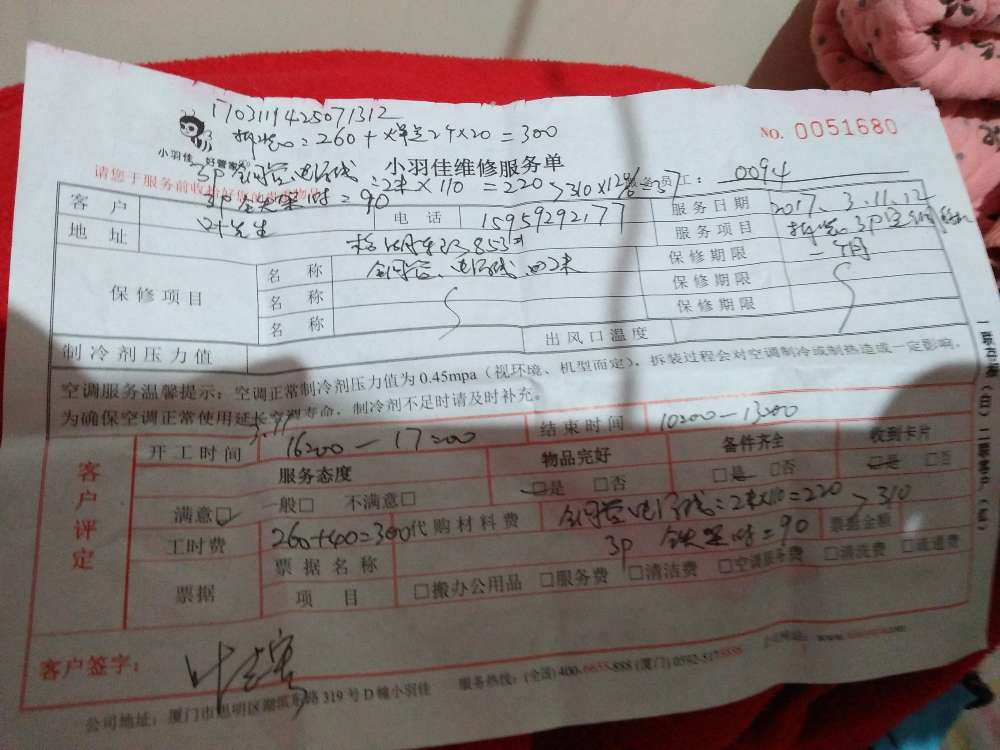 1703119425071312
拆装:260+焊2个×20=300
NO. 0051680
小羽佳 好管家
小羽佳维修服务单
3P铜管、电源线:2米×110=220>310×12%=37
员工: 0094
3P 铁架 =90
客户 叶先生 电话 15959292177 服务日期 2017、3.11、12
地址 853 服务项目 拆装 3P
保修项目 名称 铜管、电源线 2米 保修期限 一个月
名称 保修期限
名称 保修期限
制冷剂压力值 出风口温度
空调服务温馨提示:空调正常制冷剂压力值为0.45mpa(视环境、机型而定),拆装过程会对空调制冷或制热造成一定影响,
为确保空调正常使用延长空调寿命,制冷剂不足时请及时补充。
客户评定
开工时间 16:00—17:00 结束时间 10:00—13:00
服务态度 物品完好 备件齐全 收到卡片
满意☑ 一般□ 不满意□ □是 □否 □是 □否 □是 □否
工时费 260+40=300 代购材料费 铜管电源线:2米×110=220 >310
3P 铁架 =90
票据 票据名称 票据金额
项目 □搬办公用品 □服务费 □清洁费 □空调服务费 □清洗费 □疏通费
客户签字:
公司地址:厦门市思明区湖滨东路319号D幢小羽佳 服务热线:(全国)400-6655-888 (厦门)0592-5178888